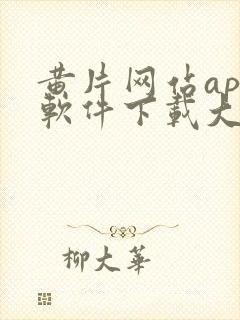 黄片网佔ap
軟件下载大
柳大華